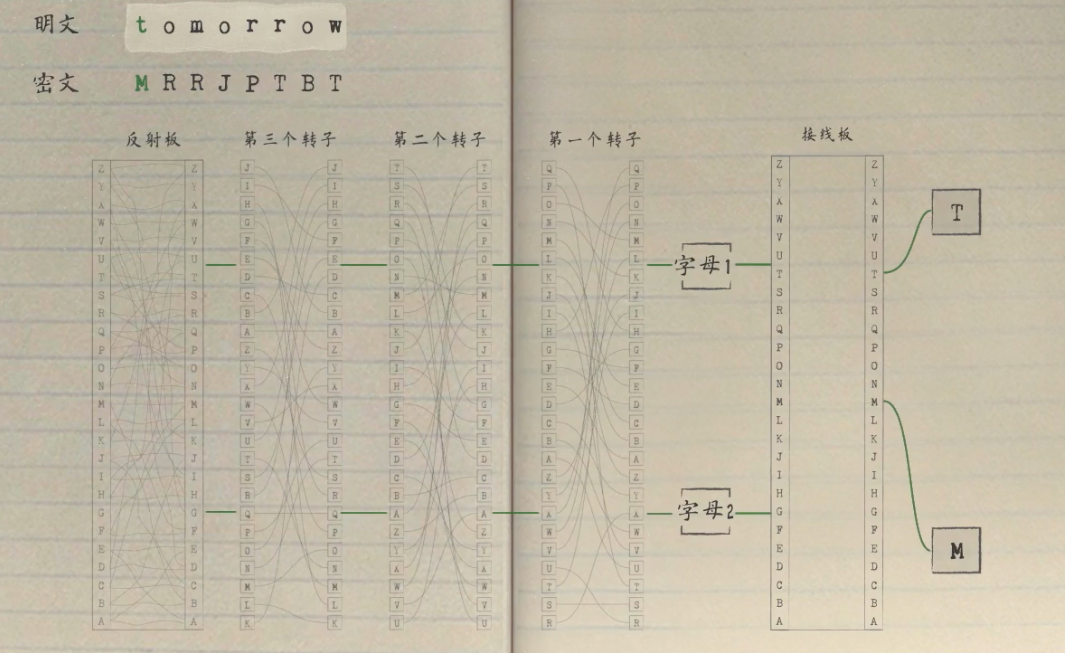 明文 t o m o r r o w
密文 M R R J P T B T
反射板 第三个转子 第二个转子 第一个转子 接线板
Z Z J J T T Q Q Z Z
Y Y I I S S P P Y Y
X X H H R R O O X X
W W G G Q Q N N W W T
V V F F P P M M V V
U U E E O O L L U U
T T D D N N K K 字母1 T T
S S C C M M J J S S
R R B B L L I I R R
Q Q A A K K H H Q Q
P P Z Z J J G G P P
O O Y Y I I F F O O
N N X X H H E E N N
M M W W G G D D M M
L L V V F F C C L L
K K U U E E B B K K
J J T T D D A A J J
I I S S C C Z Z I I
H H R R B B Y Y H H
G G Q Q A A X X 字母2 G G
F F P P Z Z W W F F
E E O O Y Y V V E E M
D D N N X X U U D D
C C M M W W T T C C
B B L L V V S S B B
A A K K U U R R A A